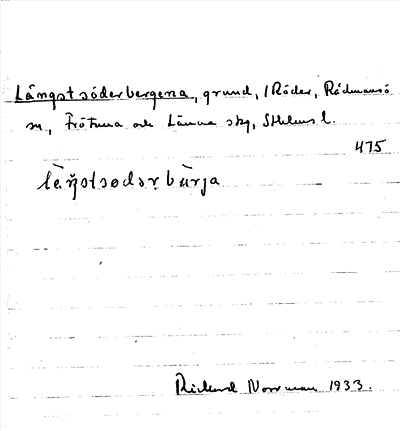 Långstsöderbergena, grund, i Röder, Rådmansö
sn, Frötuna och Länna skg, Sthlms l.
475
Rickard Norrman 1933.